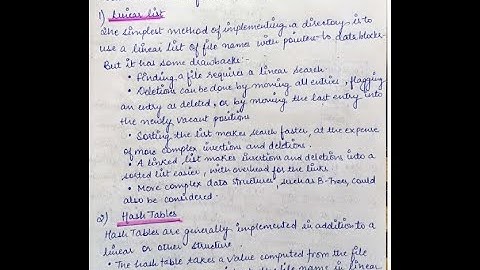 1) Linear list
The simplest method of implementing a directory is to
use a linear list of file names with pointers to data blocks.
But it has some drawbacks :-
• Finding a file requires a linear search
• Deletions can be done by moving all entries, flagging
an entry as deleted, or by moving the last entry into
the newly vacant position.
• Sorting the list makes search faster, at the expense
of more complex insertions and deletions.
• A linked list makes insertions and deletions into a
sorted list easier, with overhead for the links
• More complex data structures, such as B-Trees, could
also be considered.
2) Hash Tables
Hash Tables are generally implemented in addition to a
linear or other structure.
• The hash table takes a value computed from the file
the file name in linear